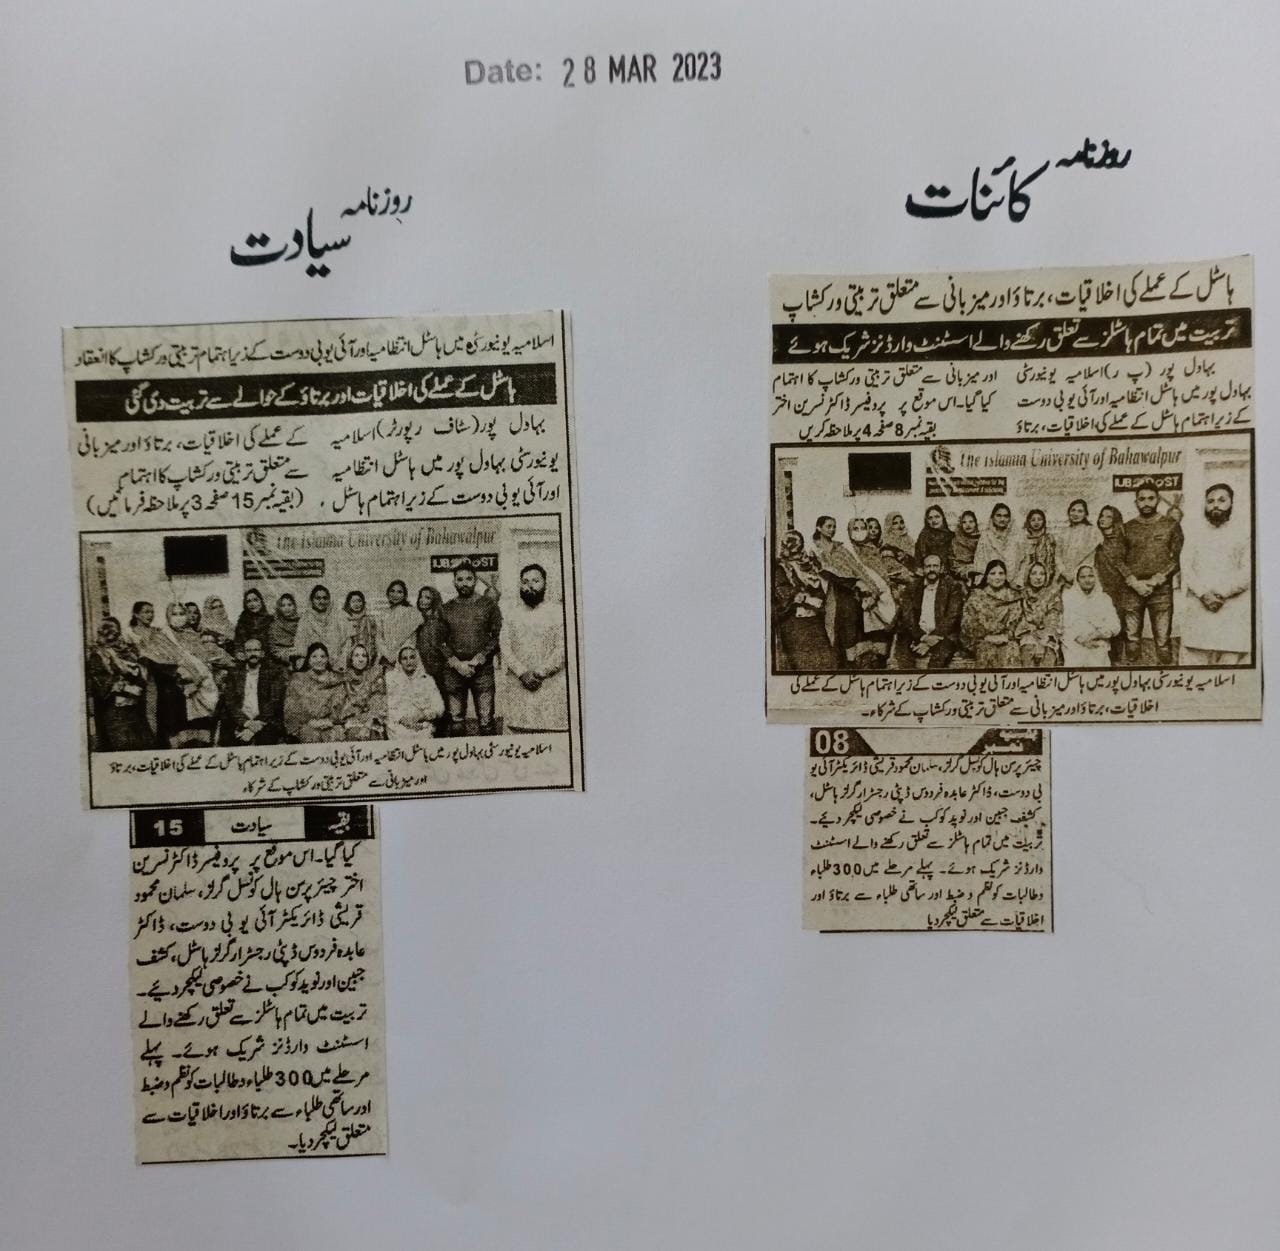 Date: 28 MAR 2023
روزنامہ
کائنات
ہاسٹل کے عملے کی اخلاقیات، برتاؤ اور میزبانی سے متعلق تربیتی ورکشاپ
تربیت میں تمام ہاسٹلز سے تعلق رکھنے والے اسسٹنٹ وارڈنز شریک ہوئے
بہاول پور (پ ر) اسلامیہ یونیورسٹی
بہاول پور میں ہاسٹل انتظامیہ اور آئی یو بی دوست
کے زیر اہتمام ہاسٹل کے عملے کی اخلاقیات، برتاؤ
اور میزبانی سے متعلق تربیتی ورکشاپ کا اہتمام
کیا گیا۔ اس موقع پر پروفیسر ڈاکٹر نسرین اختر
بقیہ نمبر 8 صفحہ 4 پر ملاحظہ کریں
The Islamia University of Bahawalpur
اسلامیہ یونیورسٹی بہاول پور میں ہاسٹل انتظامیہ اور آئی یو بی دوست کے زیر اہتمام ہاسٹل کے عملے کی
اخلاقیات، برتاؤ اور میزبانی سے متعلق تربیتی ورکشاپ کے شرکاء۔
بقیہ نمبر 08
چیئر پرسن ہال کونسل گرلز، سلمان محمود قریشی ڈائریکٹر آئی یو
بی دوست، ڈاکٹر عابدہ فردوس ڈپٹی رجسٹرار گرلز ہاسٹل،
کشف جبین اور نوید کوکب نے خصوصی لیکچر دیئے۔
تربیت میں تمام ہاسٹلز سے تعلق رکھنے والے اسسٹنٹ
وارڈنز شریک ہوئے۔ پہلے مرحلے میں 300 طلباء
و طالبات کو نظم و ضبط اور ساتھی طلباء سے برتاؤ اور
اخلاقیات سے متعلق لیکچر دیا
روزنامہ
سیادت
اسلامیہ یونیورسٹی میں ہاسٹل انتظامیہ اور آئی یو بی دوست کے زیر اہتمام تربیتی ورکشاپ کا انعقاد
ہاسٹل کے عملے کی اخلاقیات اور برتاؤ کے حوالے سے تربیت دی گئی
بہاول پور (سٹاف رپورٹر) اسلامیہ
یونیورسٹی بہاول پور میں ہاسٹل انتظامیہ
اور آئی یو بی دوست کے زیر اہتمام ہاسٹل
کے عملے کی اخلاقیات، برتاؤ اور میزبانی
سے متعلق تربیتی ورکشاپ کا اہتمام
(بقیہ نمبر 15 صفحہ 3 پر ملاحظہ فرمائیں)
The Islamia University of Bahawalpur
اسلامیہ یونیورسٹی بہاول پور میں ہاسٹل انتظامیہ اور آئی یو بی دوست کے زیر اہتمام ہاسٹل کے عملے کی اخلاقیات، برتاؤ
اور میزبانی سے متعلق تربیتی ورکشاپ کے شرکاء
بقیہ سیادت 15
کیا گیا۔ اس موقع پر پروفیسر ڈاکٹر نسرین
اختر چیئر پرسن ہال کونسل گرلز، سلمان محمود
قریشی ڈائریکٹر آئی یو بی دوست، ڈاکٹر
عابدہ فردوس ڈپٹی رجسٹرار گرلز ہاسٹل، کشف
جبین اور نوید کوکب نے خصوصی لیکچر دیئے۔
تربیت میں تمام ہاسٹلز سے تعلق رکھنے والے
اسسٹنٹ وارڈنز شریک ہوئے۔ پہلے
مرحلے میں 300 طلباء و طالبات کو نظم و ضبط
اور ساتھی طلباء سے برتاؤ اور اخلاقیات سے
متعلق لیکچر دیا۔